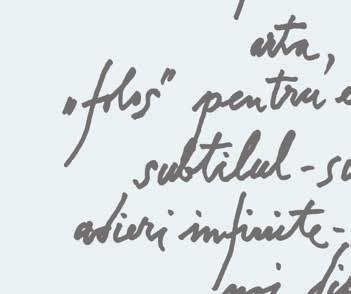 arta,
"folos" pentru
subtilul-su
adieri infinite-